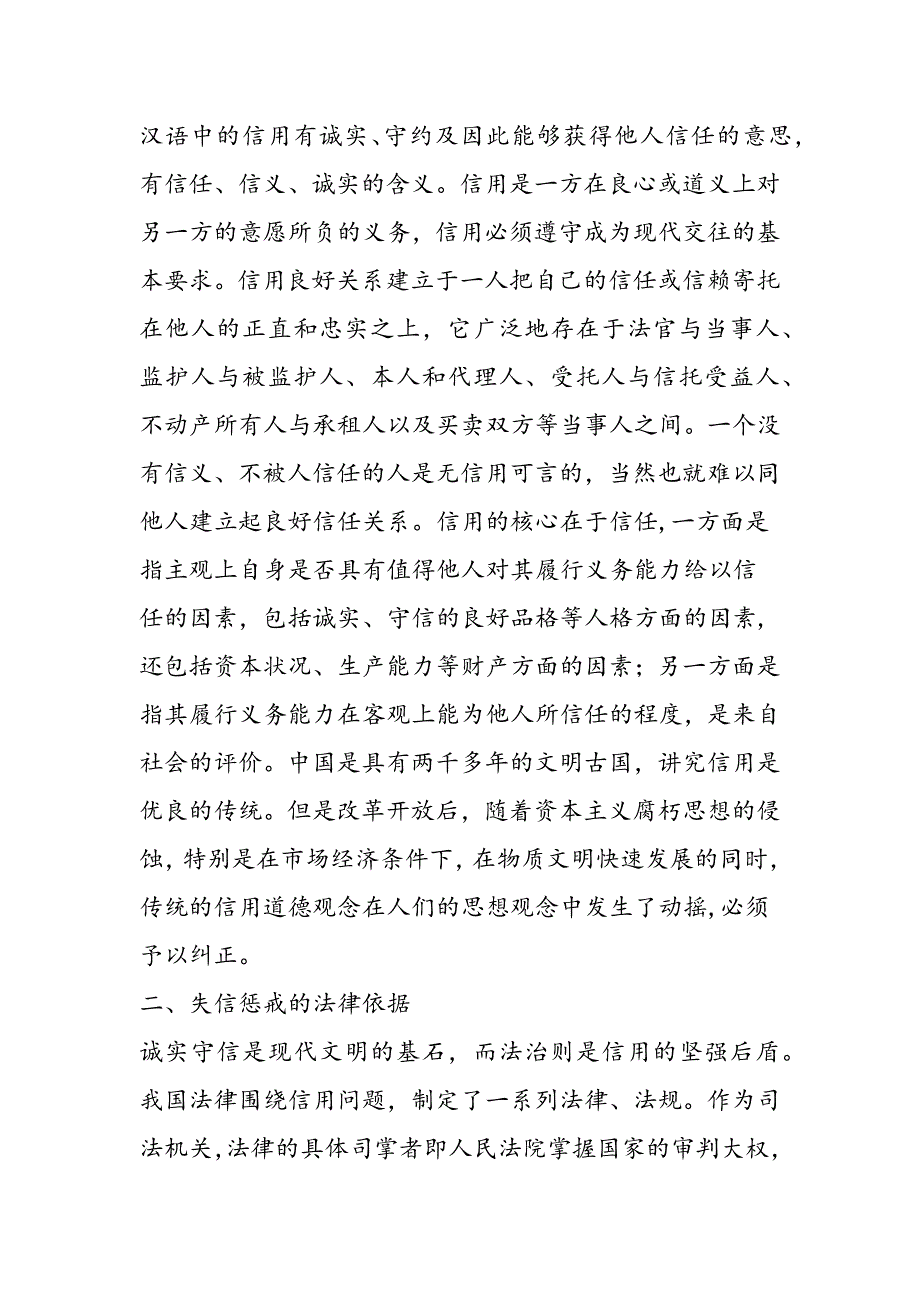 汉语中的信用有诚实、守约及因此能够获得他人信任的意思，
有信任、信义、诚实的含义。信用是一方在良心或道义上对
另一方的意愿所负的义务，信用必须遵守成为现代交往的基
本要求。信用良好关系建立于一人把自己的信任或信赖寄托
在他人的正直和忠实之上，它广泛地存在于法官与当事人、
监护人与被监护人、本人和代理人、受托人与信托受益人、
不动产所有人与承租人以及买卖双方等当事人之间。一个没
有信义、不被人信任的人是无信用可言的，当然也就难以同
他人建立起良好信任关系。信用的核心在于信任,一方面是
指主观上自身是否具有值得他人对其履行义务能力给以信
任的因素，包括诚实、守信的良好品格等人格方面的因素，
还包括资本状况、生产能力等财产方面的因素；另一方面是
指其履行义务能力在客观上能为他人所信任的程度，是来自
社会的评价。中国是具有两千多年的文明古国，讲究信用是
优良的传统。但是改革开放后，随着资本主义腐朽思想的侵
蚀,特别是在市场经济条件下,在物质文明快速发展的同时，
传统的信用道德观念在人们的思想观念中发生了动摇,必须
予以纠正。
二、失信惩戒的法律依据
诚实守信是现代文明的基石，而法治则是信用的坚强后盾。
我国法律围绕信用问题，制定了一系列法律、法规。作为司
法机关,法律的具体司掌者即人民法院掌握国家的审判大权，